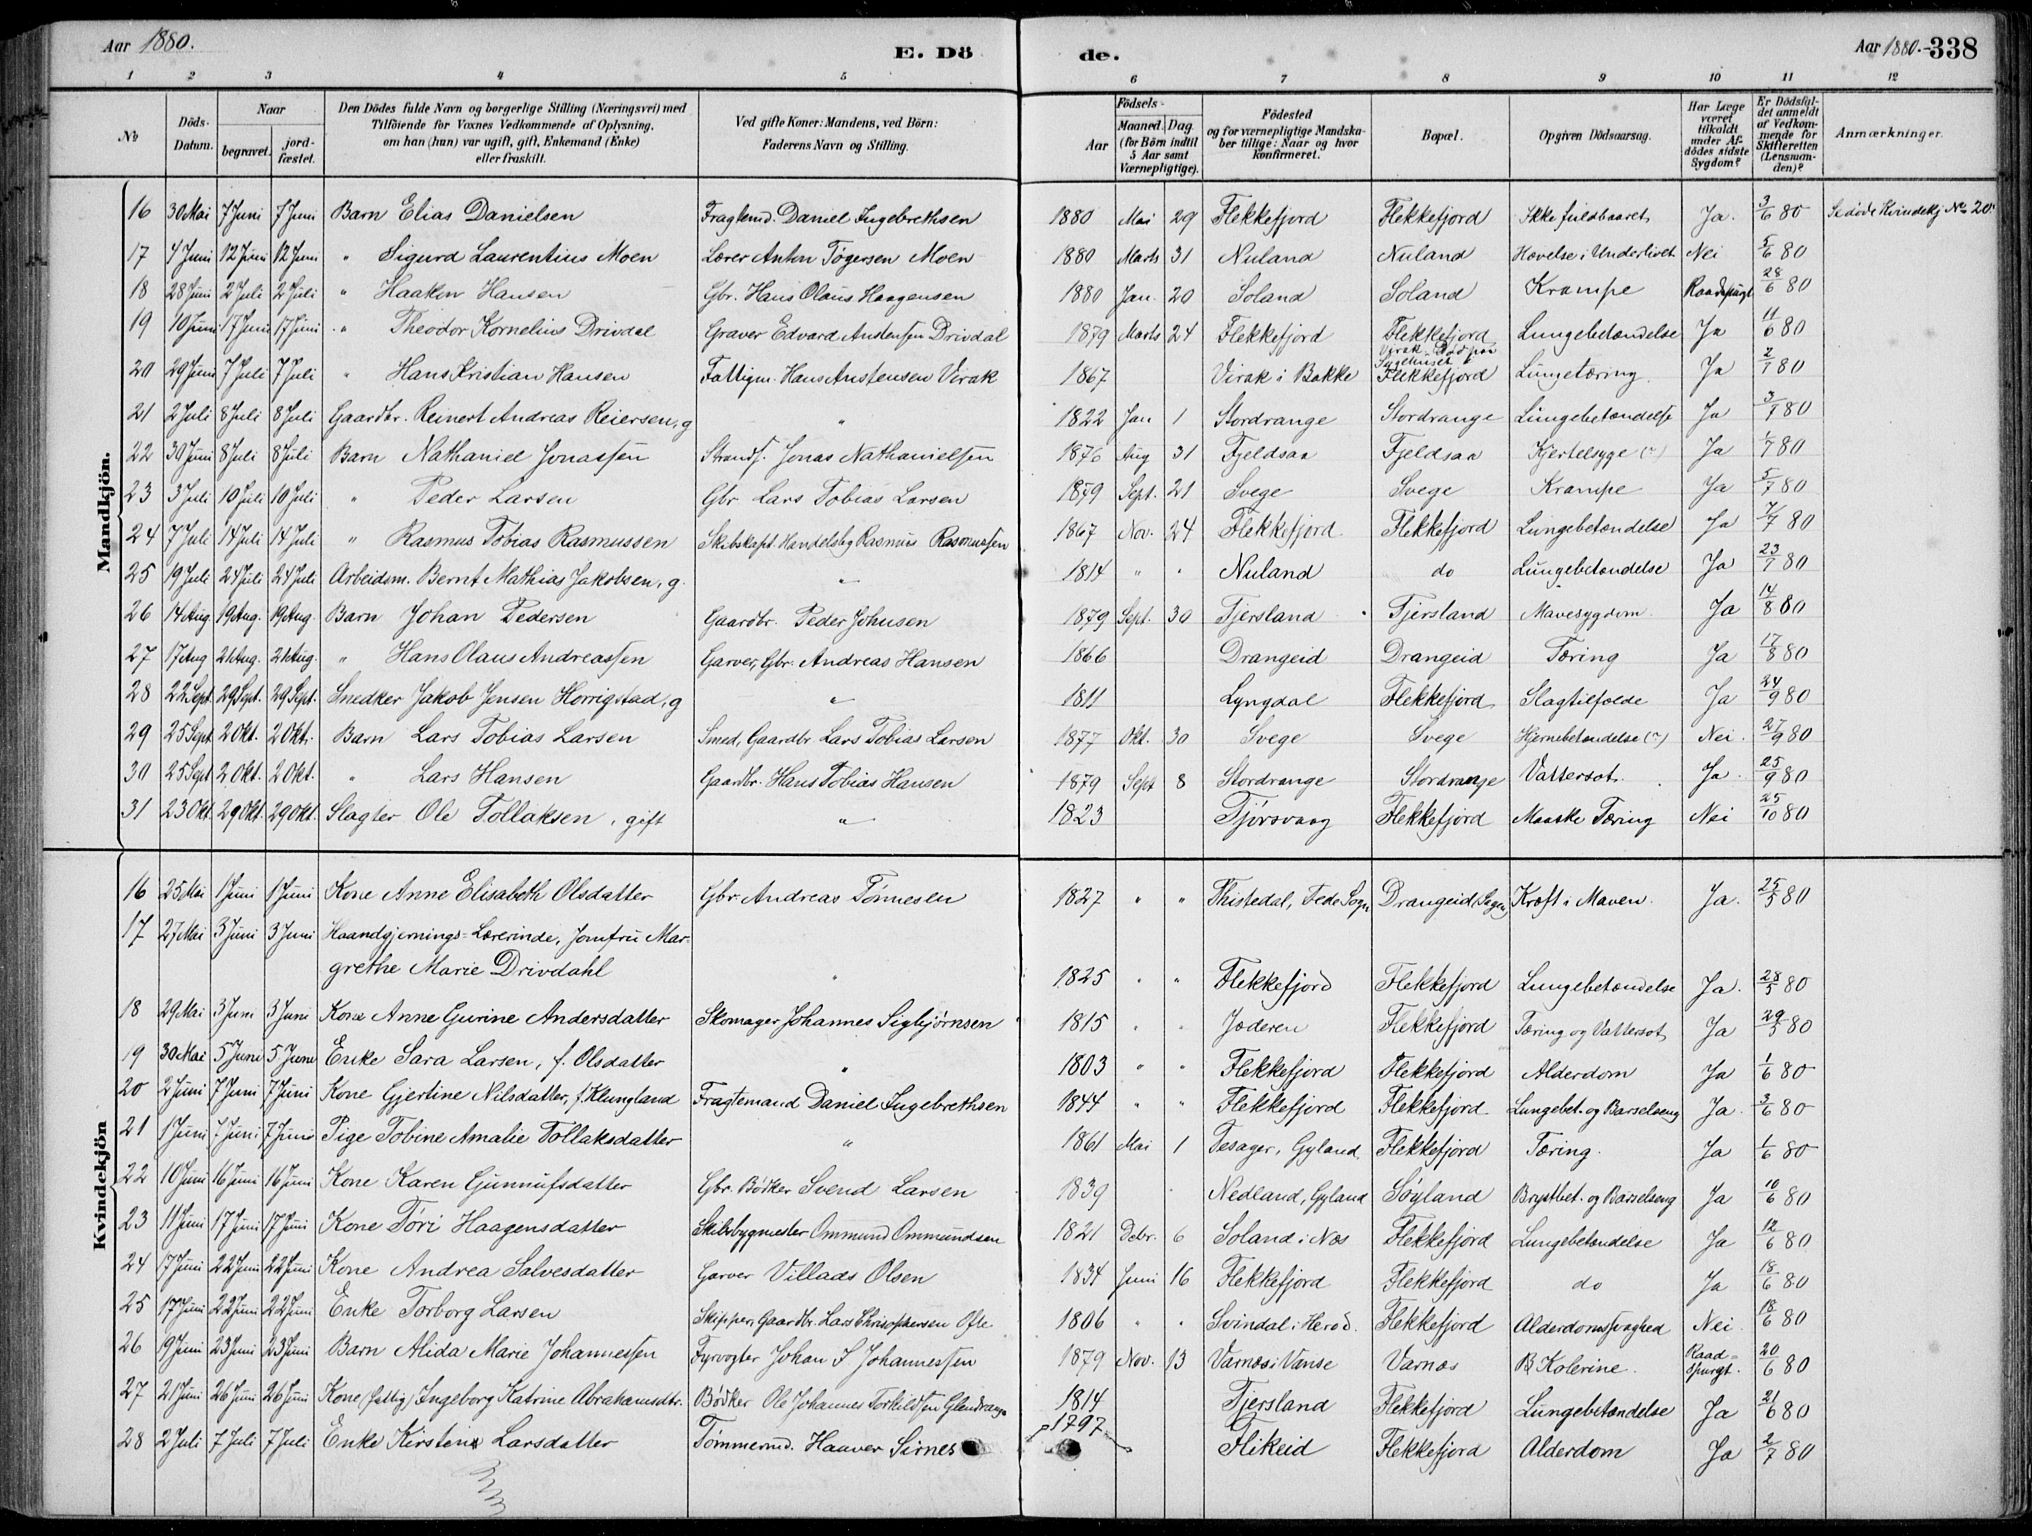 Aar 1880. E. Dö de. Aar 1880.-338
1 2 3 4 5 6 7 8 9 10 11 12
No
Döds-Datum.
Naar
begravet.
jord-fæstet.
Den Dödes fulde Navn og borgerlige Stilling (Næringsvei) med
Tilföiende for Voxnes Vedkommende af Oplysning,
om han (hun) var ugift, gift, Enkemand (Enke)
eller fraskilt.
Ved gifte Koner: Mandens, ved Börn:
Faderens Navn og Stilling.
Födsels-
Aar
Maaned. Dag
(for Börn indtil
5 Aar samt
Værnepligtige).
Födested
og for værnepligtige Mandska-
ber tillige: Naar og hvor
konfirmeret.
Bopæl.
Opgiven Dödsaarsag.
Har Læge
været
tilkaldt
under Af-
dödes sidste
Sygdom?
Er Dödsfal-
det anmeldt
af Vedkom-
mende for
Skifteretten
(Lensman-
den)?
Anmærkninger.
Mandkjön.
16 30 Mai 7 Juni 7 Juni Barn Elias Danielsen Fragtemd. Daniel Ingebrethsen 1880 Mai 29 Flekkefjord Flekkefjord Ikke fuldbaaret Ja. 3/6 80 Se døde Kvindekj No 20.
17 4 Juni 12 Juni 12 Juni " Sigurd Laurentius Moen Lærer Anton Tøgersen Moen 1880 Marts 31 Nuland Nuland Hævelse i Underlivet Nei 5/6 80
18 28 Juni 2 Juli 2 Juli " Haakon Hansen Gbr. Hans Olaus Haagensen 1880 Jan. 20 Soland Soland Krampe Raadspurgt 28/6 80
19 10 Juni 17 Juni 17 Juni " Theodor Kornelius Drivdal Graver Edvard Austensen Drivdal 1879 Marts 24 Flekkefjord Flekkefjord Lungebetændelse Ja 11/6 80
20 29 Juni 7 Juli 7 Juli " Hans Kristian Hansen Fattigm. Hans Austensen Virak 1867 Virak i Bakke Virak. Død paa Sygehuset i Flekkefjord Lungetæring. Ja 2/7 80
21 2 Juli 8 Juli 8 Juli Gaardbr. Reinert Andreas Reiersen, g " 1822 Jan 1 Stordrange Stordrange Lungebetændelse Ja 3/7 80
22 30 Juni 8 Juli 8 Juli Barn Nathaniel Jonassen Strands. Jonas Nathanielsen 1876 Aug 31 Fjeldsaa Fjeldsaa Kjertelsyge (?) Ja 1/7 80
23 3 Juli 10 Juli 10 Juli " Peder Larsen Gbr Lars Tobias Larsen 1879 Sept. 21 Svege Svege Krampe Ja 5/7 80
24 7 Juli 14 Juli 14 Juli " Rasmus Tobias Rasmussen Skibskapt. Handelsbg Rasmus Rasmussen 1867 Nov. 24 Flekkefjord Flekkefjord Lungebetændelse Ja 7/7 80
25 19 Juli 24 Juli 24 Juli Arbeidsm. Bernt Mathias Jakobsen, g. " 1814 " " Nuland do Lungebetændelse Ja 23/7 80
26 14 Aug 19 Aug. 19 Aug. Barn Johan Pedersen Gaardbr. Peder Johnsen 1879 Sept. 30 Tjersland Tjersland Mavesygdom Ja 14/8 80
27 17 Aug 21 Aug. 21 Aug. " Hans Olaus Andreassen Garver, Gbr. Andreas Hansen 1866 Drangeid Drangeid Tæring Ja 17/8 80
28 22 Sept 29 Sept. 29 Sept. Snedker Jakob Jensen Horrigstad, g " 1811 Lyngdal Flekkefjord Slagtilfælde Ja 24/9 80
29 25 Sept 2 Okt. 2 Okt. Barn Lars Tobias Larsen Smed, Gaardbr Lars Tobias Larsen 1877 Okt. 30 Svege Svege Hjernebetændelse (?) Nei. 27/9 80
30 25 Sept 2 Okt. 2 Okt. " Lars Hansen Gaardbr. Hans Tobias Hansen 1879 Sept 8 Stordrange Stordrange Vattersot. Ja. 25/9 80
31 23 Okt. 29 Okt. 29 Okt. Slagter Ole Tollaksen, gift " 1823 Tjørsvaag Flekkefjord Maaske Tæring Nei 25/10 80
Kvindekjön
16 25 Mai 1 Juni 1 Juni Kone Anne Elisabeth Olsdatter Gbr Andreas Tønnesen 1827 " " Thistedal, Fede Sogn Drangeid, Sogn Kræft i Maven. Ja. 25/5 80
17 27 Mai 3 Juni 3 Juni Haandgjernings-Lærerinde, Jomfru Mar-
grethe Marie Drivdahl " 1825 " " Flekkefjord Flekkefjord Lungebetændelse Ja. 28/5 80
18 29 Mai 3 Juni 3 Juni Kone Anne Gurine Andersdatter Skomager Johannes Sigbjørnsen 1815 " Jæderen Flekkefjord Tæring og Vattersot Ja 29/5 80
19 30 Mai 5 Juni 5 Juni Enke Sara Larsen, f. Olsdatter " 1803 " " Flekkefjord Flekkefjord Alderdom Ja 1/6 80
20 2 Juni 7 Juni 7 Juni Kone Gjertine Nilsdatter, f. Klungland Fragtemand Daniel Ingebrethsen 1844 " " Flekkefjord Flekkefjord Lungebet. og Barselseng Ja. 3/6 80
21 1 Juni 7 Juni 7 Juni Pige Tobine Amalie Tollaksdatter " 1861 Mai 1 Tesager, Gyland Flekkefjord Tæring. Ja 1/6 80
22 10 Juni 16 Juni 16 Juni Kone Karen Gunnufsdatter Gbr. Bødker Svend Larsen 1839 Nedland, Gyland Søyland Brystbet. og Barselseng Ja 10/6 80
23 11 Juni 17 Juni 17 Juni Kone Tøri Haagensdatter Skibsbygmester Ommund Ommundsen 1821 Debr. 6 Soland i Næs Flekkefjord Lungebetændelse Ja 12/6 80
24 17 Juni 22 Juni 22 Juni Kone Andrea Salvesdatter Garver Villads Olsen 1834 Juni 16 Flekkefjord Flekkefjord do Ja 18/6 80
25 17 Juni 22 Juni 22 Juni Enke Torborg Larsen Skipper, Gaardbr. Lars Chrisophersen Ofte 1806 " " Svindal i Herad. Flekkefjord Alderdomssvaghed Nei. 18/6 80
26 19 Juni 23 Juni 23 Juni Barn Alida Marie Johannessen Fyrvogter Johan S Johannessen 1879 Nov. 13 Varnæs i Vanse Varnæs Kolerine. Raad-spurgt. 20/6 80
27 21 Juni 26 Juni 26 Juni Kone (fattig) Ingeborg Katrine Abrahamsdtr. Bødker Ole Johannes Torkildsen Glendrange 1814 Tjersland Flekkefjord Lungebetændelse Ja 21/6 80
28 2 Juli 7 Juli 7 Juli Enke Kirsten Larsdatter Tømmermd. Haaver Sirnes 1797 Flikeid Flekkefjord Alderdom Ja 2/7 80